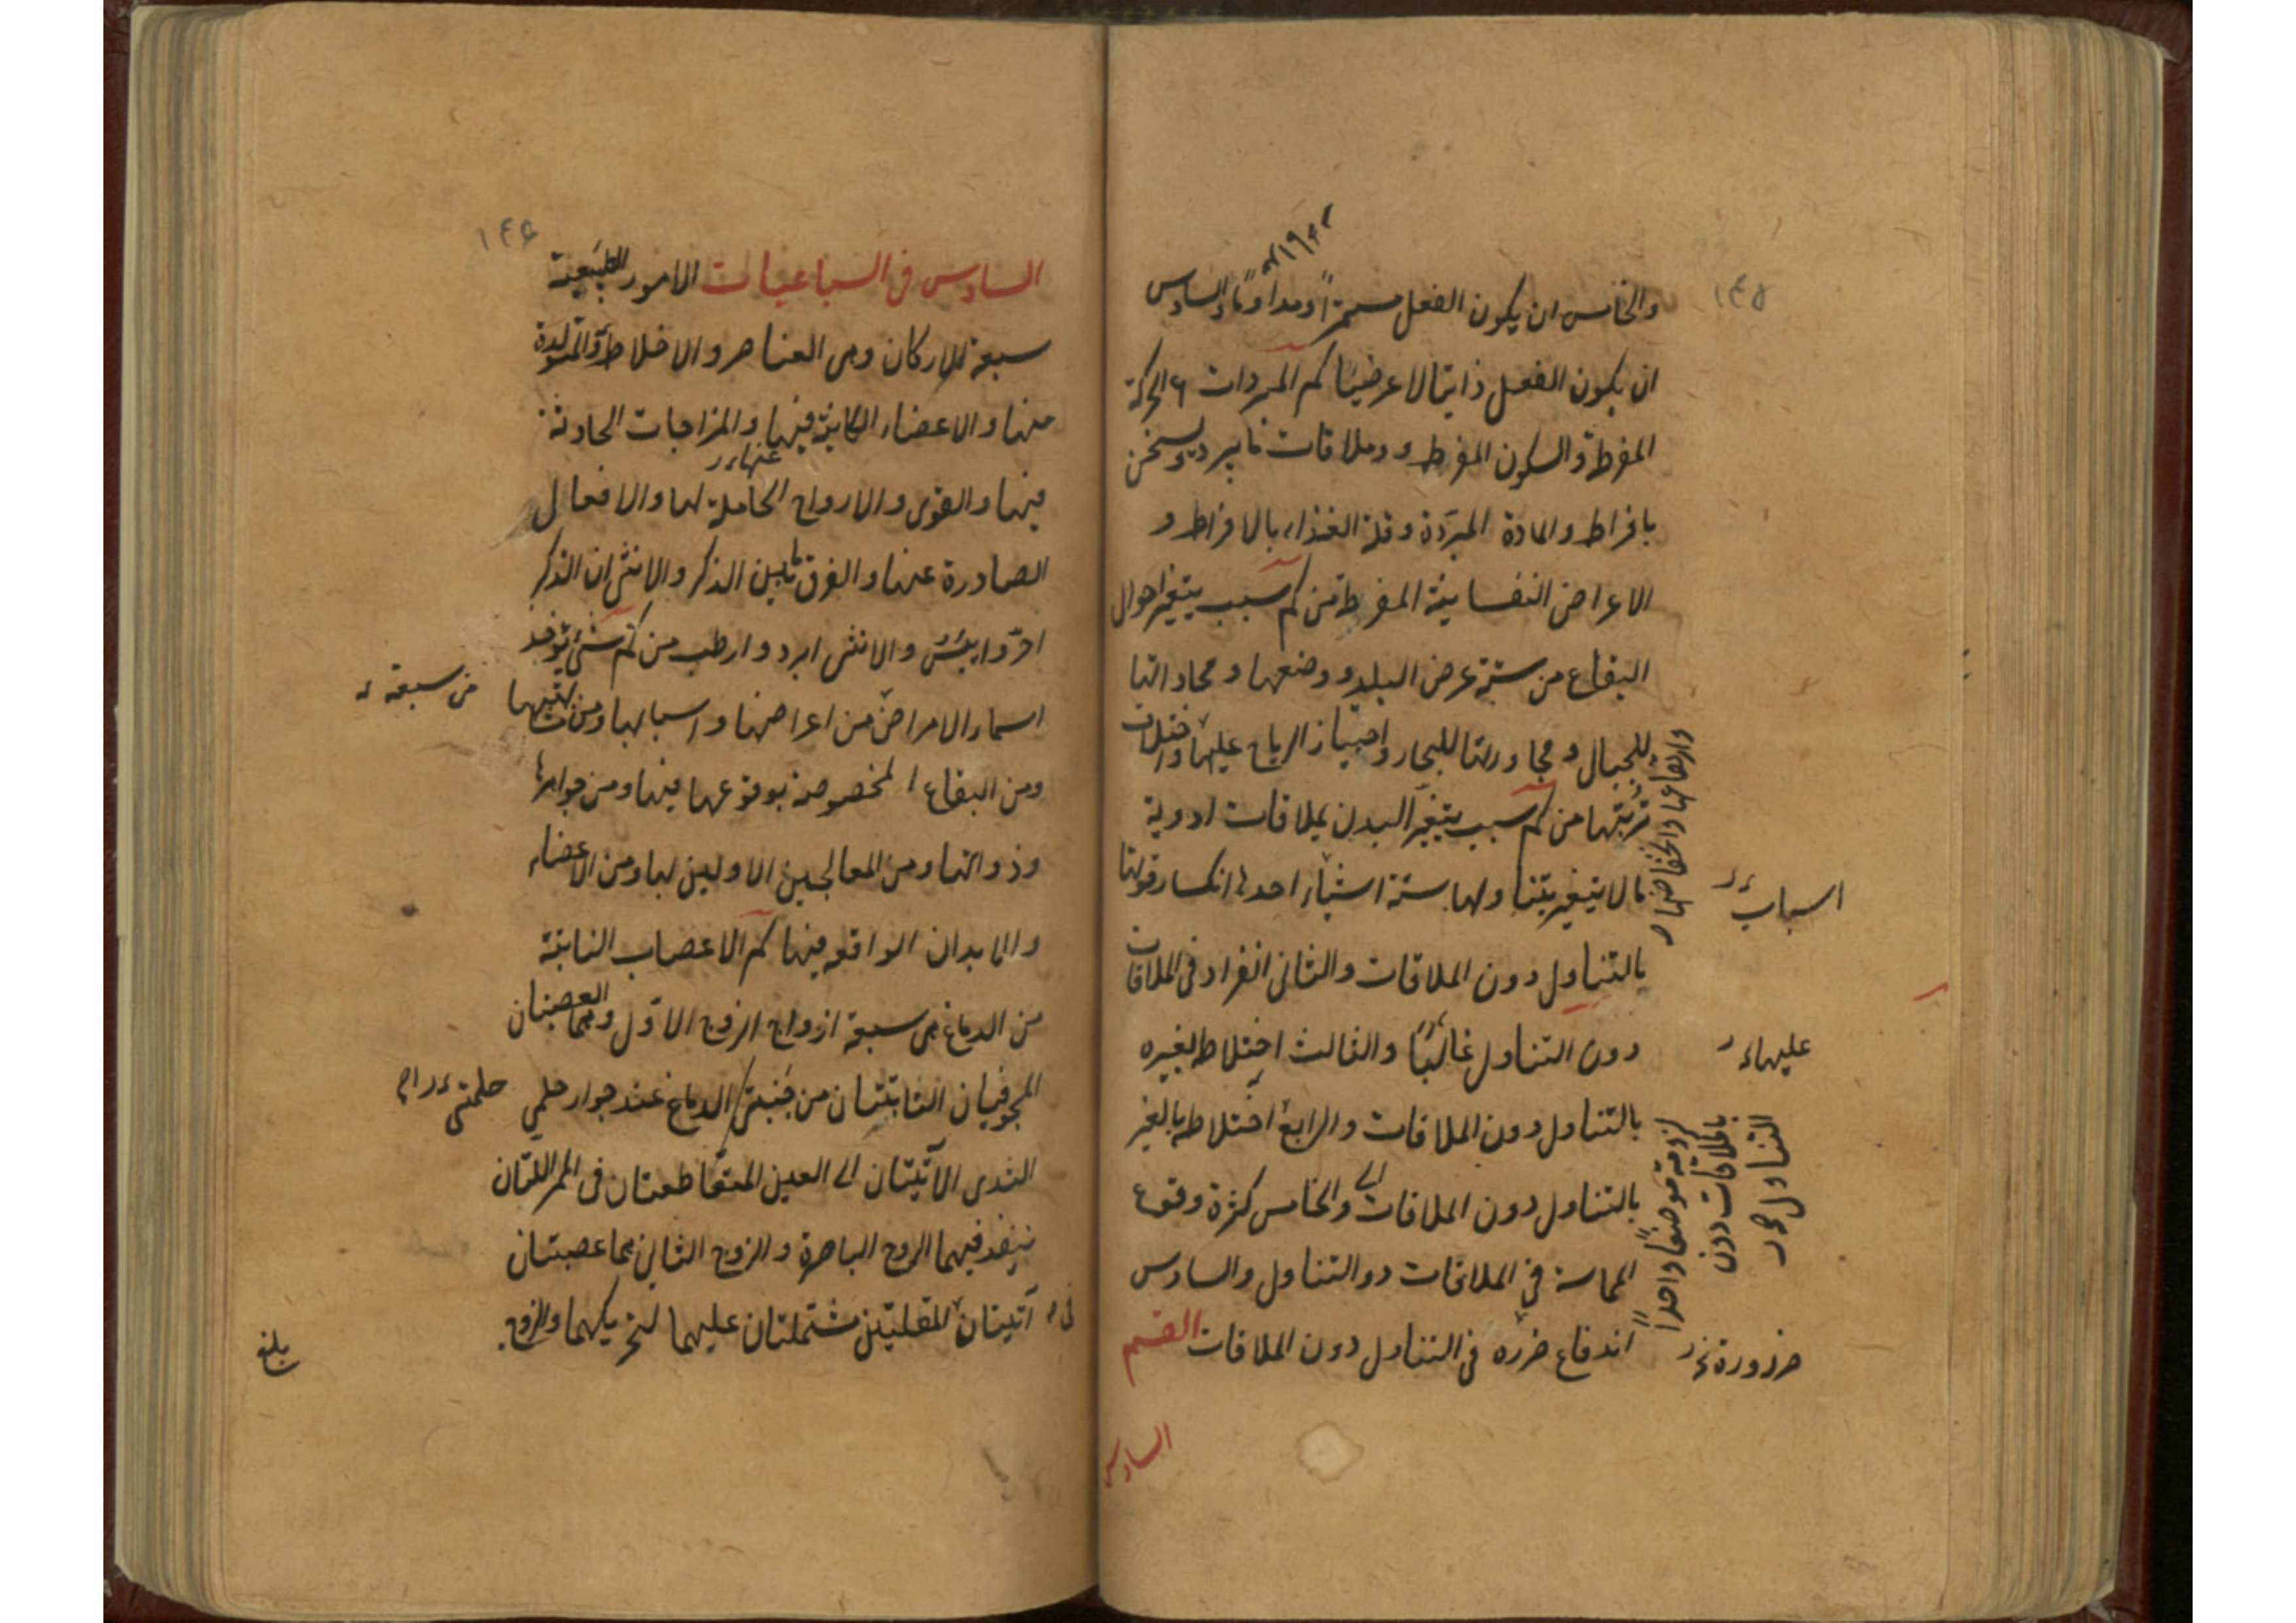 ١٤٥
والخامس ان يكون الفعل مستمرا ومداوما والسادس
ان يكون الفعل ذاتيا لا عرضيا كم المبردات ٦ الحركة
المفرطة والسكون المفرط وملاقات ما يبرد ويسخن
بافراط والمادة المبرّدة وقلة الغذاء بالافراط و
الاعراض النفسانية المفرطة من كم سبب يتغير احوال
البقاع من ستة عرض البلد ووضعها ومحاذاتها
للجبال ومجاورتها للبحار واجتياز الرياح عليها واختلاف
تربتها من كم سبب يتغيّر البدن بملاقات ادوية
ما لا يتغير بتناولها ستة اشياء احدها انكسار قوتها
بالتناول دون الملاقات والثاني انفراد في الملاقات
دون التناول غالبًا والثالث اختلاط بغيره
بالتناول دون الملاقات والرابع اختلاطه بالغير
بالتناول دون الملاقات والخامس كثرة وقوع
المماسة في الملاقات دو التناول والسادس
اندفاع ضرره في التناول دون الملاقات القسم
السادس
وارتفاعها وانخفاضها
اسباب
عليها
لزومه موضعًا واحدًا
بالملاقات دون
التناول
ضرورة
١٤٦
السادس في السباعيات الامور الطبيعية
سبعة الاركان وهي العناصر والاخلاط والمتولدة
منها والاعضاء الكاينة فيها والمزاجات الحادثة
عنها
فيها والقوى والارواح الحاملة لها والافعال
الصادرة عنها والفرق ما بين الذكر والانثى ان الذكر
احرّ وايبس والانثى ابرد وارطب من كم شيء يؤخذ
اسماء الامراض من اعراضها واسبابها ومن
ومن البقاع المخصوصة بوقوعها فيها ومن جواهرها
وذواتها ومن المعالجين الاولين لها ومن الاعضاء
والابدان الواقعه فيها كم الاعصاب النابتة
من الدماغ هي سبعة ازواج الزوج الاوّل وهما العصبتان
المجوفتان النابتتان من جنبتي الدماغ عند جوار حلمي
الثدي الآتيتان الى العين المتقاطعتان في الممر اللتان
ينفذ فيهما الروح الباصرة والزوج الثاني هما عصبتان
آتيتان المقلتين مشتملتان عليهما لتحريكهما والزوج
من سبعة
حلمتي
في
بلغ